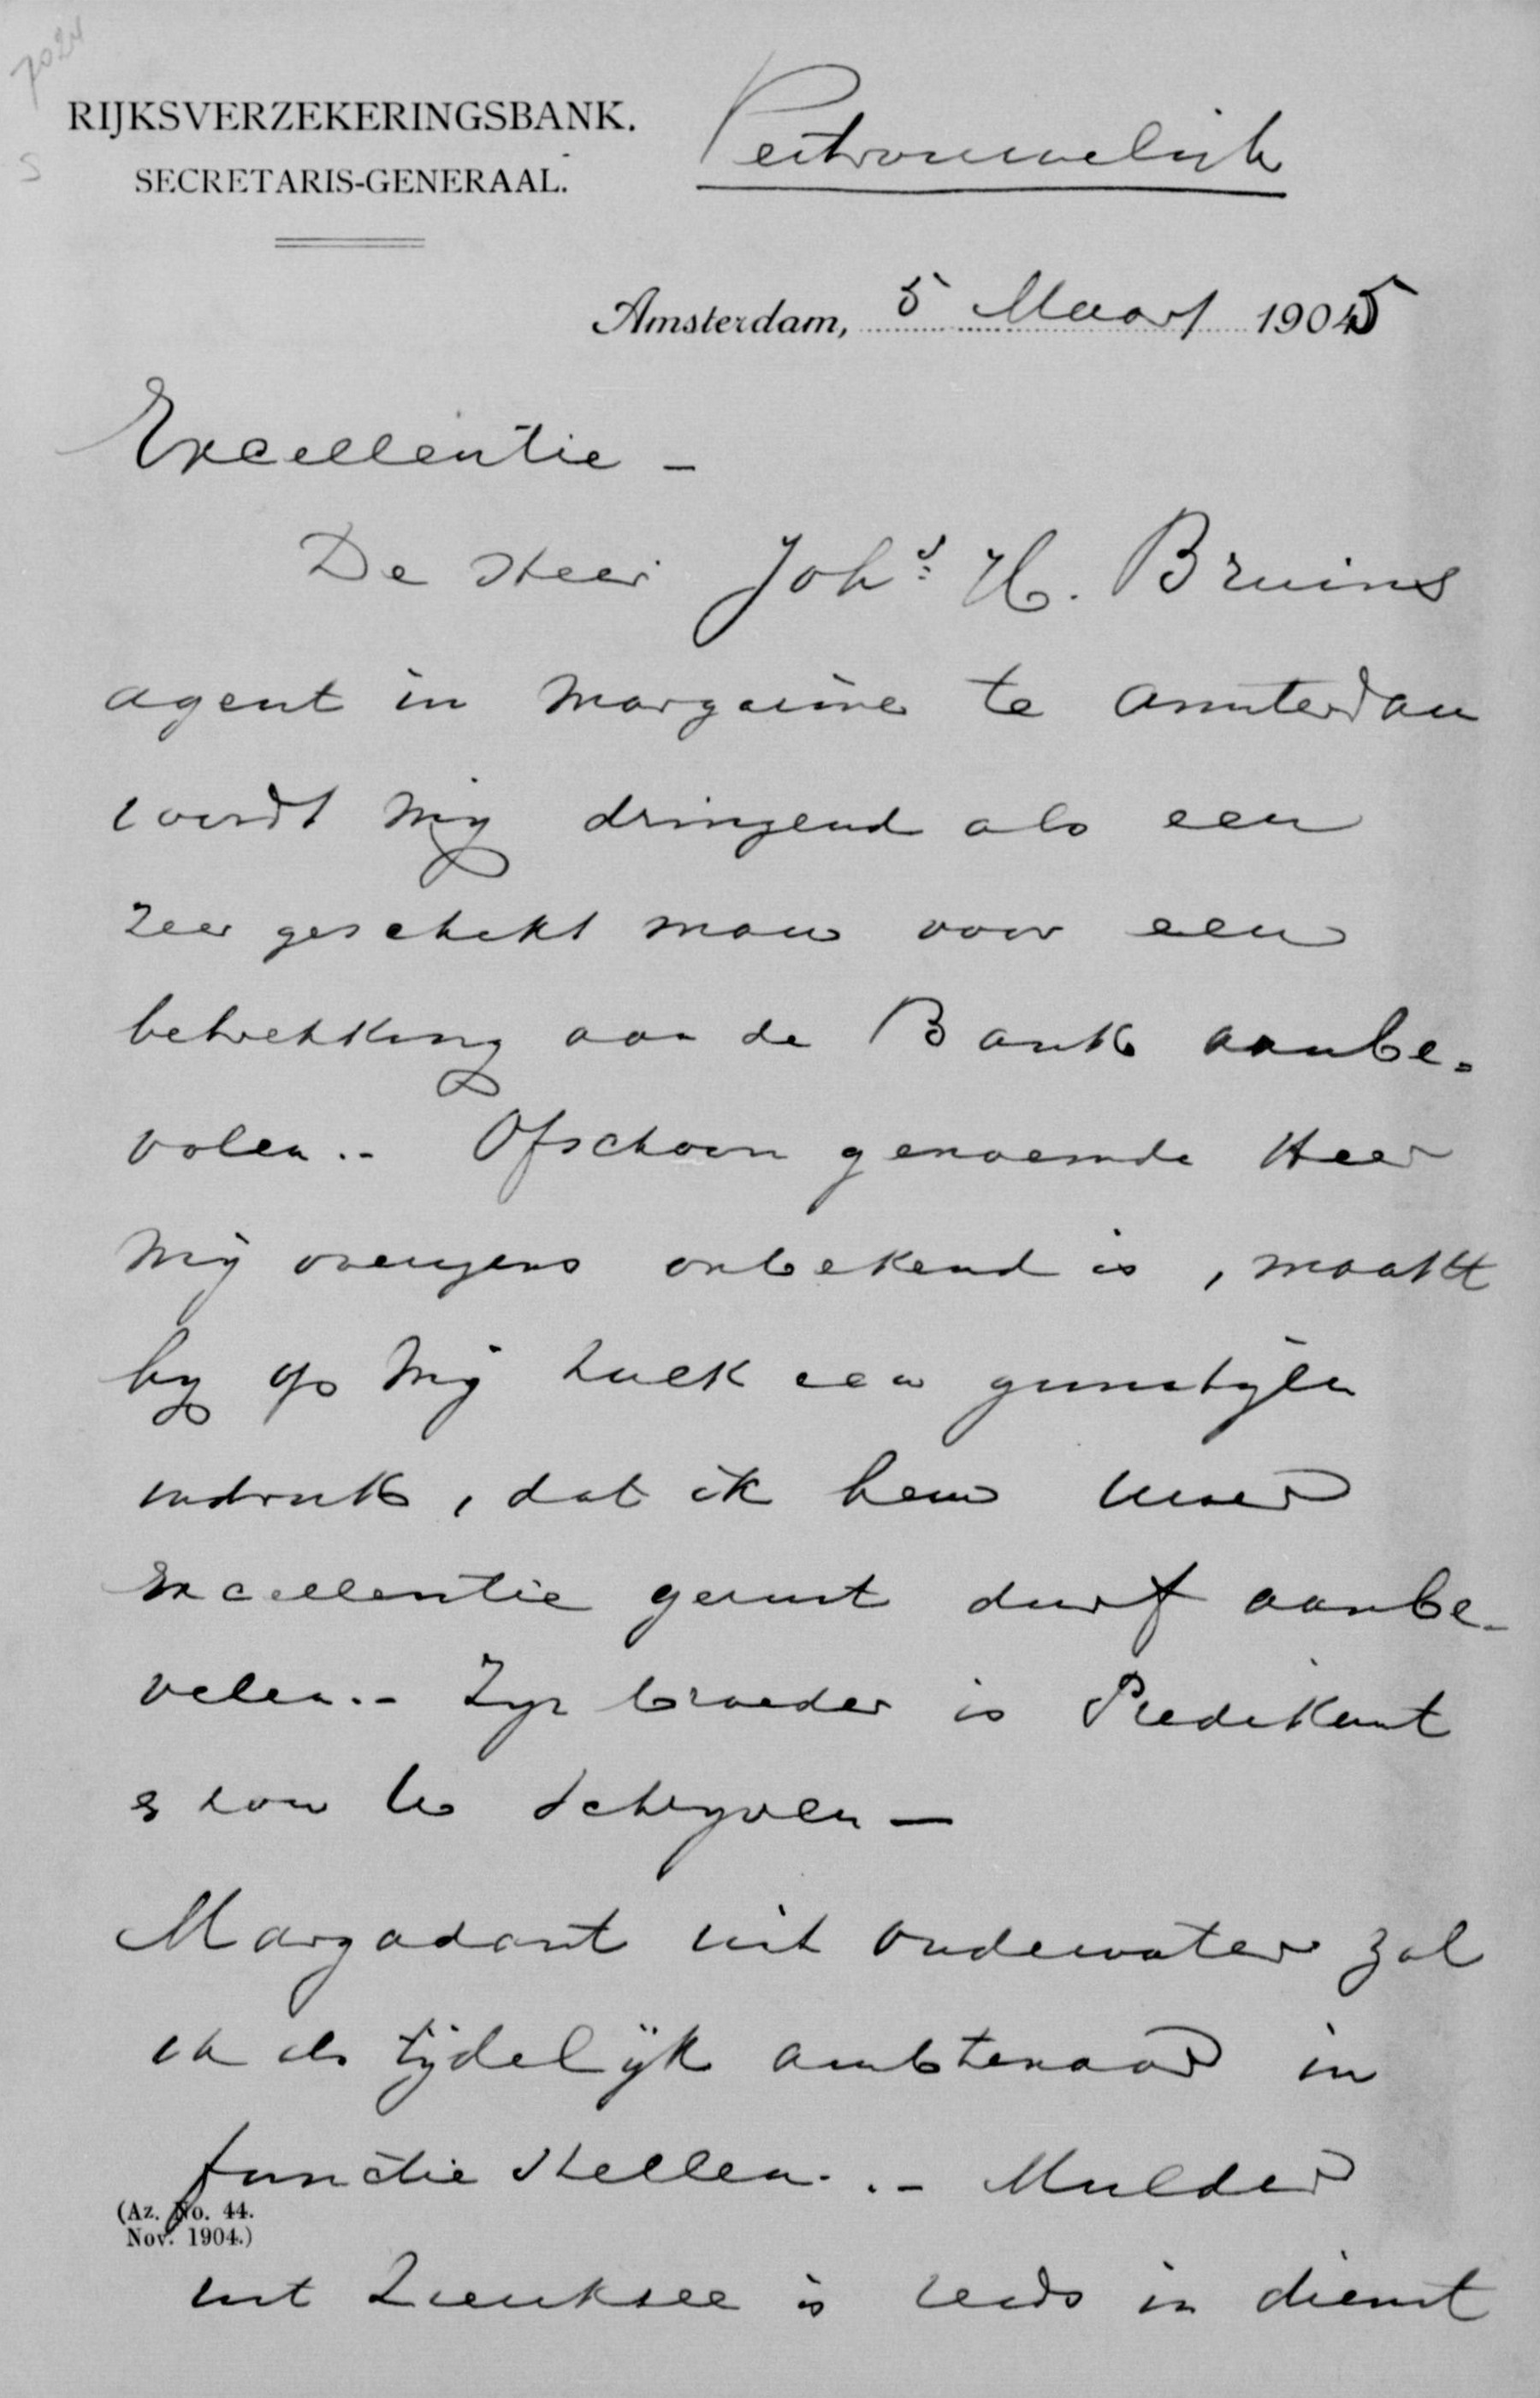 7024
S
RIJKSVERZEKERINGSBANK.
SECRETARIS-GENERAAL.
Vertrouwelijk
Amsterdam, 5 Maart 1905
Excellentie -
De Heer Joh.s H. Bruins
agent in Margarine te Amsterdam
wordt mij dringend als een
zeer geschikt man voor een
betrekking aan de Bank aanbe-
volen.- Ofschoon genoemde Heer
mij overigens onbekend is, maakt
hij op mij zulk een gunstigen
indruk, dat ik hem Uwer
Excellentie gerust durf aanbe-
velen.- Zijn broeder is Predikant
te Schijven -
Margadant uit Oudewater zal
ik als tijdelijk ambtenaar in
functie stellen.- Mulder
(Az. No. 44.
Nov. 1904.)
uit Zierikzee is reeds in dienst